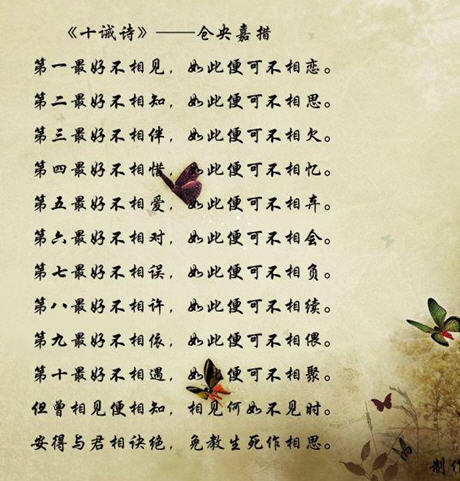 《十诫诗》——仓央嘉措
第一最好不相见，如此便可不相恋。
第二最好不相知，如此便可不相思。
第三最好不相伴，如此便可不相欠。
第四最好不相惜，如此便可不相忆。
第五最好不相爱，如此便可不相弃。
第六最好不相对，如此便可不相会。
第七最好不相误，如此便可不相负。
第八最好不相许，如此便可不相续。
第九最好不相依，如此便可不相偎。
第十最好不相遇，如此便可不相聚。
但曾相见便相知，相见何如不见时。
安得与君相诀绝，免教生死作相思。
制作